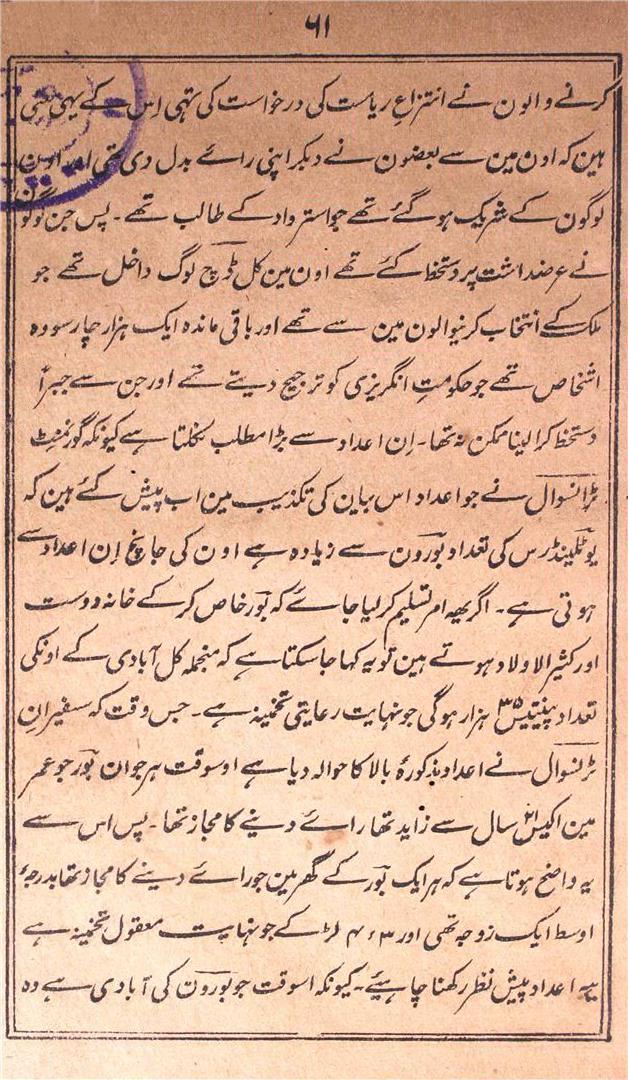 ۶۱
کرنے والون نے انتزاعِ ریاست کی درخواست کی تہی اس کے یہی معنی
ہین کہ اون مین سے بعضون نے دیگر اپنی رائے بدل دی تہی اور اون
لوگون کے شریک ہوگئے تھے جو استرداد کے طالب تھے۔ پس جن لوگون
نے عرضداشت پر دستخط کئے تھے اون مین کل ڈچ لوگ داخل تھے جو
ملک کے انتخاب کرنیوالون مین سے تھے اور باقی ماندہ ایک ہزار چار سو وہ
اشخاص تھے جو حکومتِ انگریزی کو ترجیح دیتے تھے اور جن سے جبراً
دستخط کرا لینا ممکن نہ تھا۔ اِن اعداد سے بڑا مطلب نکلتا ہے کیونکہ گورنمنٹ
ٹرانسوال نے جو اعداد اس بیان کی تکذیب مین اب پیش کئے ہین کہ
یوٹلینڈرس کی تعداد بورون سے زیادہ ہے اون کی جانچ اِن اعداد سے
ہوتی ہے۔ اگر یہہ امر تسلیم کر لیا جائے کہ بور خاص کر کے خانہ دوست
اور کثیر الاولاد ہوتے ہین تو یہ کہا جاسکتا ہے کہ منجملہ کل آبادی کے اونکی
تعداد پینتیس ۳۵ ہزار ہوگی جو نہایت رعایتی تخمینہ ہے۔ جس وقت کہ سفیرانِ
ٹرانسوال نے اعداد مذکورۂ بالا کا حوالہ دیا ہے اوسوقت ہر جوان بور جو عمر
مین اکیس ۲۱ سال سے زاید تھا رائے دینے کا مجاز تھا۔ پس اس سے
یہ واضح ہوتا ہے کہ ہر ایک بور کے گھر مین جو رائے دینے کا مجاز تھا بدرجۂ
اوسط ایک زوجہ تھی اور ۳ء۴ لڑکے جو نہایت معقول تخمینہ ہے
یہہ اعداد پیش نظر رکھنا چاہیئے۔ کیونکہ اسوقت جو بورون کی آبادی ہے وہ